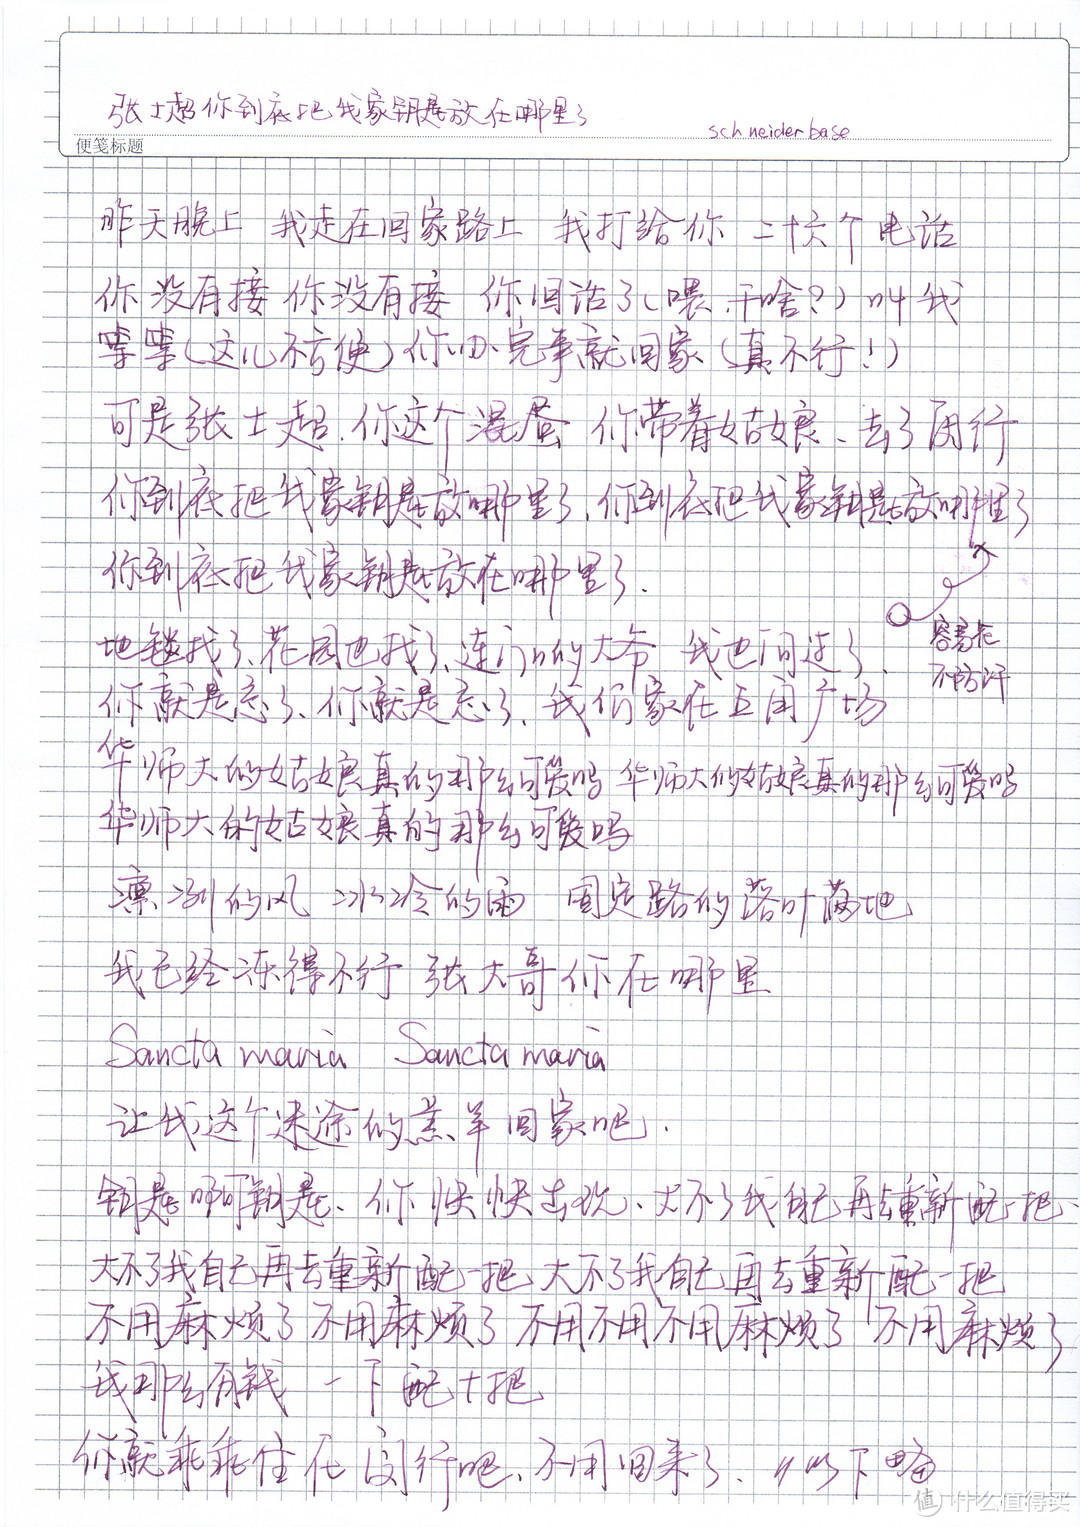 张士超你到底把我家钥匙放在哪里了
schneider base
便笺标题
昨天晚上 我走在回家路上 我打给你 二十六个电话
你没有接 你没有接 你回话了(喂,干啥?)叫我
等等(这儿不方便)你办完事就回家(真不行!)
可是张士超,你这个混蛋 你带着姑娘、去了闵行
你到底把我家钥匙放哪里了,你到底把我家钥匙放哪里了
你到底把我家钥匙放在哪里了.
容易花
不防汗
地毯找了、花园也找了、连门口的大爷 我也问过了、
你就是忘了、你就是忘了、我们家在五角广场
华师大的姑娘真的那么可爱吗 华师大的姑娘真的那么可爱吗
华师大的姑娘真的那么可爱吗
凛冽的风 冰冷的雨 国定路的落叶满地
我已经冻得不行 张大哥你在哪里
Sancta maria Sancta maria
让我这个迷途的羔羊回家吧.
钥匙啊钥匙、你快快出现、大不了我自己再去重新配一把
大不了我自己再去重新配一把 大不了我自己再去重新配一把
不用麻烦了 不用麻烦了 不用不用不用麻烦了 不用麻烦了
我那么有钱 一下配十把
你就乖乖住在闵行吧、不用回来了、 以下略
值 什么值得买